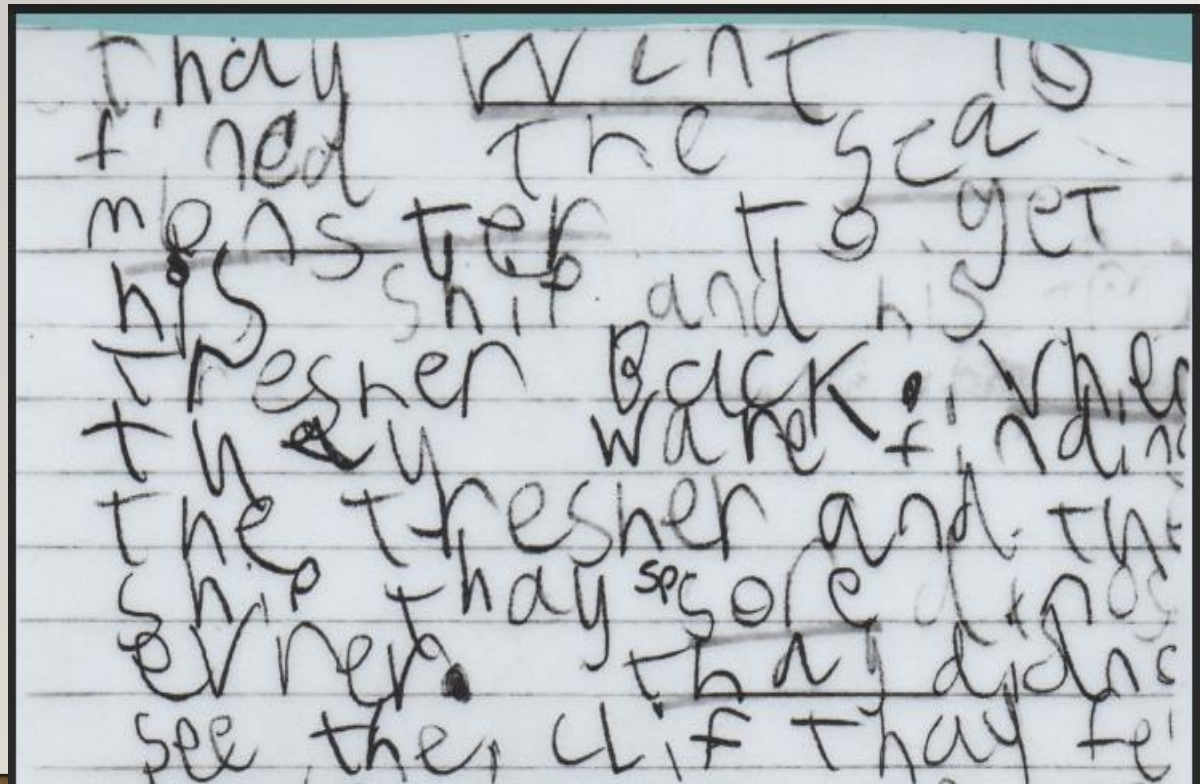 thay went to
fined the sea
monster to get
his ship and his
tresher Back. when
they ware finding
the tresher and the
ship thay sp sore
evrrer. thay didns
see the clif thay